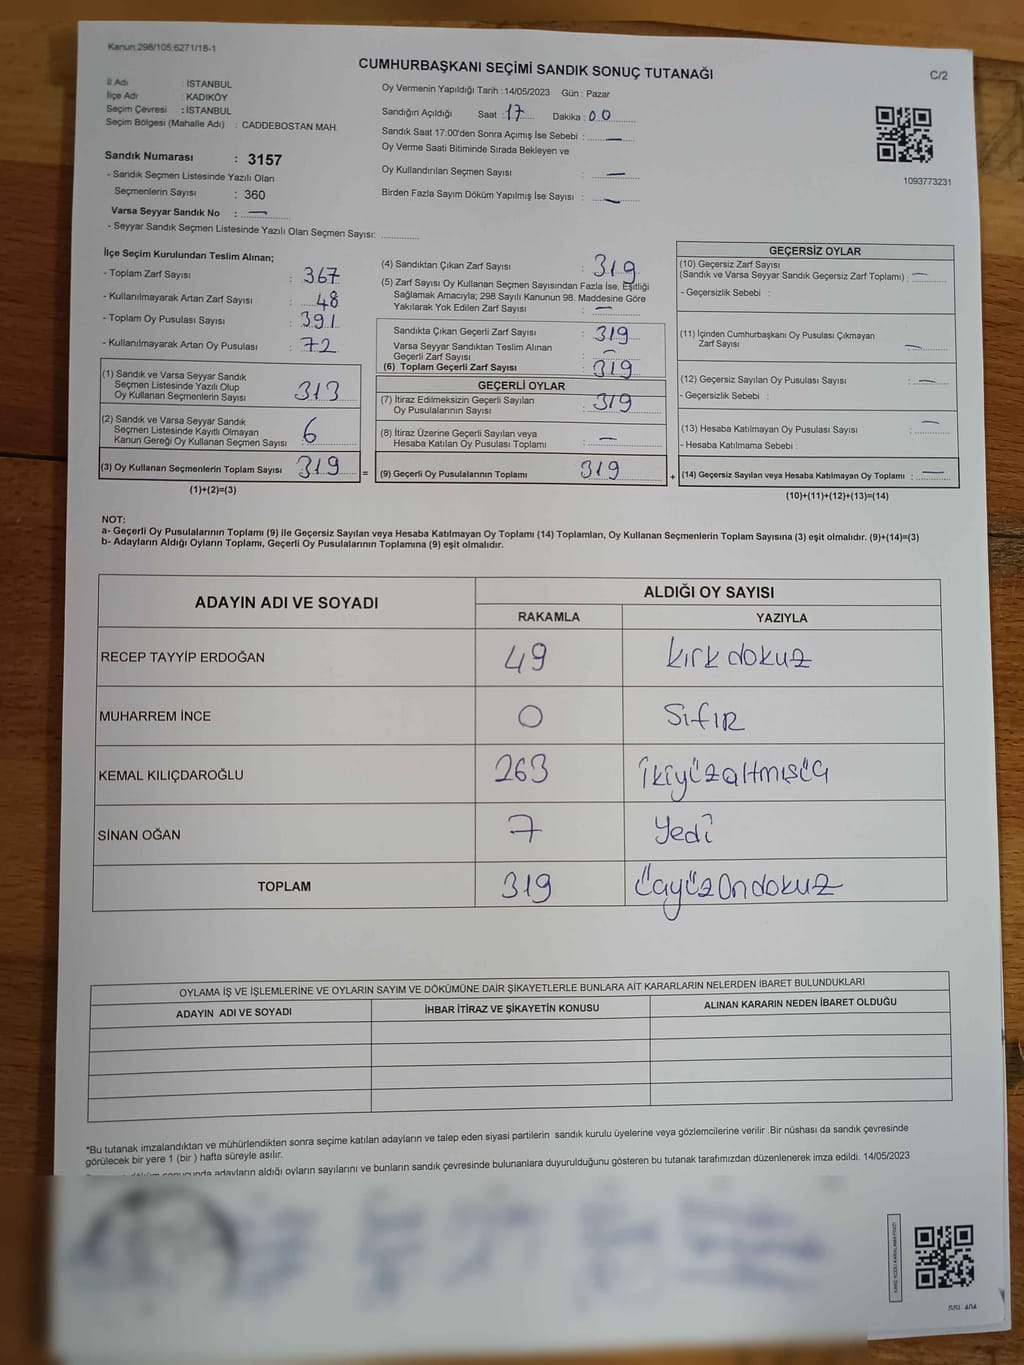 Kanun:298/105;6271/18-1
CUMHURBAŞKANI SEÇİMİ SANDIK SONUÇ TUTANAĞI
C/2
İl Adı : İSTANBUL
İlçe Adı : KADIKÖY
Seçim Çevresi : İSTANBUL
Seçim Bölgesi (Mahalle Adı) : CADDEBOSTAN MAH.
Sandık Numarası : 3157
- Sandık Seçmen Listesinde Yazılı Olan
Seçmenlerin Sayısı : 360
Varsa Seyyar Sandık No : —
- Seyyar Sandık Seçmen Listesinde Yazılı Olan Seçmen Sayısı: ............
Oy Vermenin Yapıldığı Tarih : 14/05/2023 Gün : Pazar
Sandığın Açıldığı Saat : 17 Dakika : 00
Sandık Saat 17:00'den Sonra Açımış İse Sebebi : —
Oy Verme Saati Bitiminde Sırada Bekleyen ve
Oy Kullandırılan Seçmen Sayısı : —
Birden Fazla Sayım Döküm Yapılmış İse Sayısı : —
1093773231
İlçe Seçim Kurulundan Teslim Alınan;
- Toplam Zarf Sayısı : 367
- Kullanılmayarak Artan Zarf Sayısı : 48
- Toplam Oy Pusulası Sayısı : 391
- Kullanılmayarak Artan Oy Pusulası : 72
(1) Sandık ve Varsa Seyyar Sandık
Seçmen Listesinde Yazılı Olup
Oy Kullanan Seçmenlerin Sayısı 313
(2) Sandık ve Varsa Seyyar Sandık
Seçmen Listesinde Kayıtlı Olmayan
Kanun Gereği Oy Kullanan Seçmen Sayısı : 6
(3) Oy Kullanan Seçmenlerin Toplam Sayısı 319 =
(1)+(2)=(3)
(4) Sandıktan Çıkan Zarf Sayısı : 319
(5) Zarf Sayısı Oy Kullanan Seçmen Sayısından Fazla İse, Eşitliği
Sağlamak Amacıyla; 298 Sayılı Kanunun 98. Maddesine Göre
Yakılarak Yok Edilen Zarf Sayısı : —
Sandıkta Çıkan Geçerli Zarf Sayısı : 319
Varsa Seyyar Sandıktan Teslim Alınan
Geçerli Zarf Sayısı : —
(6) Toplam Geçerli Zarf Sayısı : 319
GEÇERLİ OYLAR
(7) İtiraz Edilmeksizin Geçerli Sayılan
Oy Pusulalarının Sayısı : 319
(8) İtiraz Üzerine Geçerli Sayılan veya
Hesaba Katılan Oy Pusulası Toplamı : —
(9) Geçerli Oy Pusulalarının Toplamı 319 +
GEÇERSİZ OYLAR
(10) Geçersiz Zarf Sayısı
(Sandık ve Varsa Seyyar Sandık Geçersiz Zarf Toplamı) : —
- Geçersizlik Sebebi :
(11) İçinden Cumhurbaşkanı Oy Pusulası Çıkmayan
Zarf Sayısı : —
(12) Geçersiz Sayılan Oy Pusulası Sayısı : —
- Geçersizlik Sebebi :
(13) Hesaba Katılmayan Oy Pusulası Sayısı : —
- Hesaba Katılmama Sebebi :
(14) Geçersiz Sayılan veya Hesaba Katılmayan Oy Toplamı : —
(10)+(11)+(12)+(13)=(14)
NOT:
a- Geçerli Oy Pusulalarının Toplamı (9) ile Geçersiz Sayılan veya Hesaba Katılmayan Oy Toplamı (14) Toplamları, Oy Kullanan Seçmenlerin Toplam Sayısına (3) eşit olmalıdır. (9)+(14)=(3)
b- Adayların Aldığı Oyların Toplamı, Geçerli Oy Pusulalarının Toplamına (9) eşit olmalıdır.
ADAYIN ADI VE SOYADI ALDIĞI OY SAYISI
RAKAMLA YAZIYLA
RECEP TAYYİP ERDOĞAN 49 kırk dokuz
MUHARREM İNCE 0 Sıfır
KEMAL KILIÇDAROĞLU 263 ikiyüzaltmışüç
SİNAN OĞAN 7 Yedi
TOPLAM 319 Üçyüzondokuz
OYLAMA İŞ VE İŞLEMLERİNE VE OYLARIN SAYIM VE DÖKÜMÜNE DAİR ŞİKAYETLERLE BUNLARA AİT KARARLARIN NELERDEN İBARET BULUNDUKLARI
ADAYIN ADI VE SOYADI İHBAR İTİRAZ VE ŞİKAYETİN KONUSU ALINAN KARARIN NEDEN İBARET OLDUĞU
*Bu tutanak imzalandıktan ve mühürlendikten sonra seçime katılan adayların ve talep eden siyasi partilerin sandık kurulu üyelerine veya gözlemcilerine verilir .Bir nüshası da sandık çevresinde
görülecek bir yere 1 (bir ) hafta süreyle asılır.
adayların aldığı oyların sayılarını ve bunların sandık çevresinde bulunanlara duyurulduğunu gösteren bu tutanak tarafımızdan düzenlenerek imza edildi. 14/05/2023